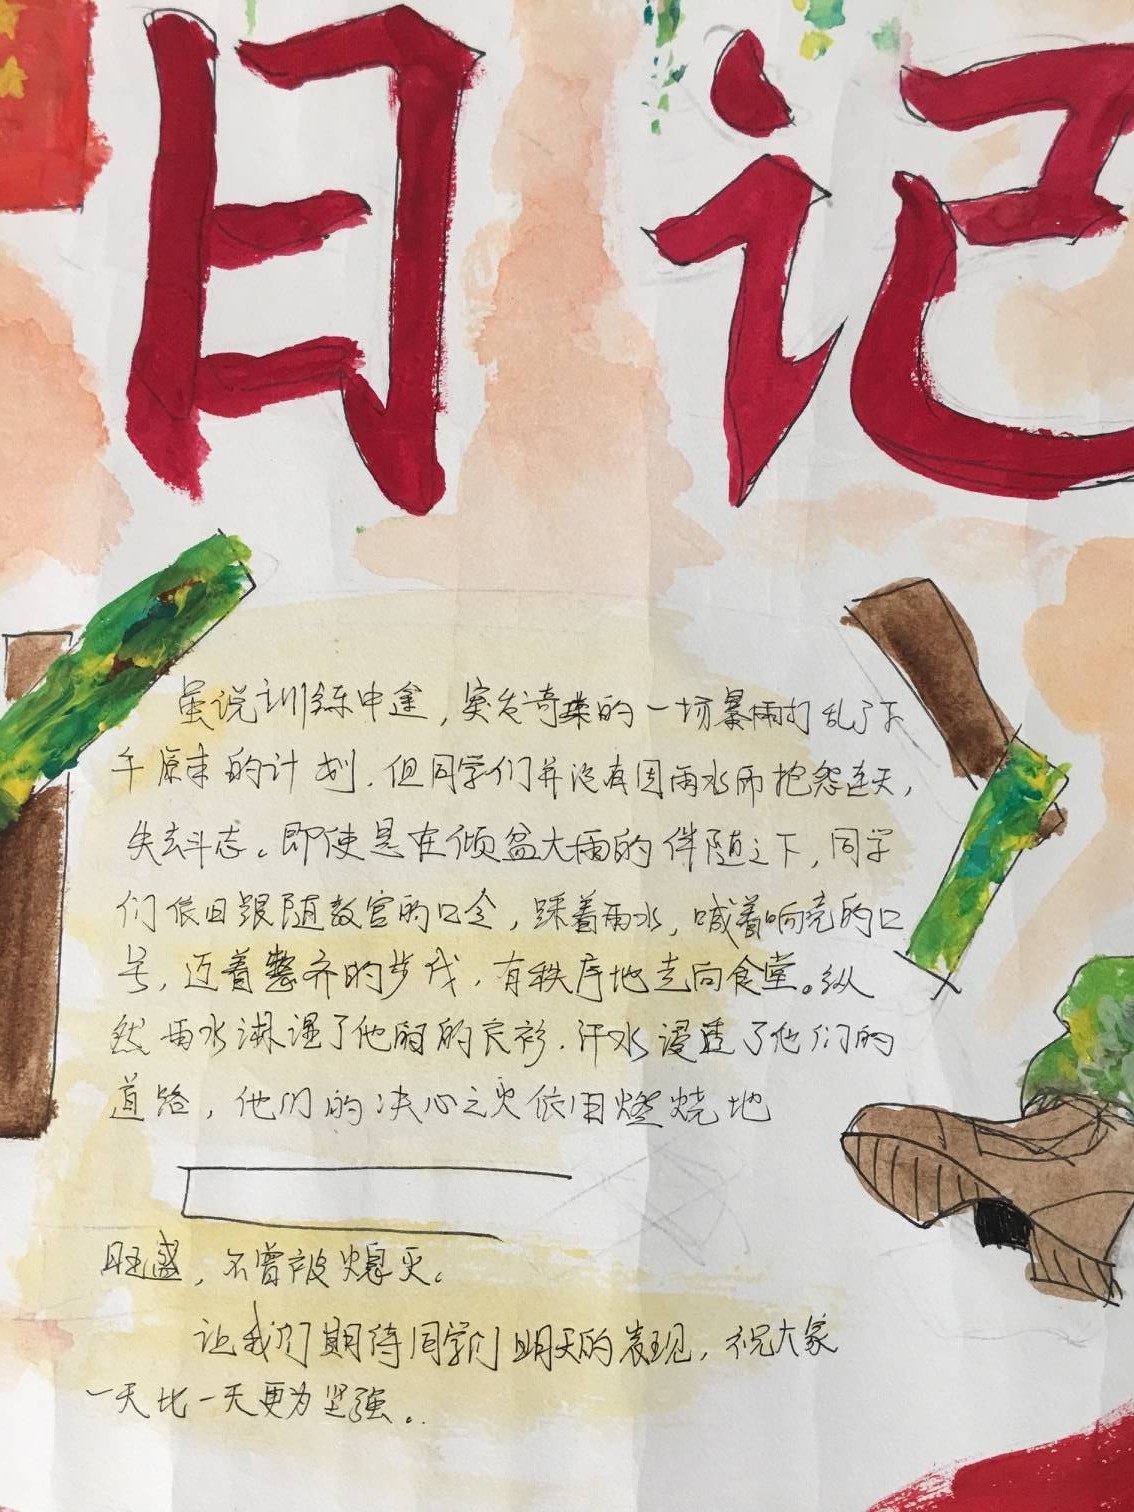 日记
虽说训练中途，突发奇来的一场暴雨打乱了下
午原来的计划，但同学们并没有因雨水而抱怨连天，
失去斗志。即使是在倾盆大雨的伴随之下，同学
们依旧跟随教官的口令，踩着雨水，喊着响亮的口
号，迈着整齐的步伐，有秩序地走向食堂。纵
然雨水淋湿了他们的衣衫，汗水浸透了他们的
道路，他们的决心之火依旧燃烧地
旺盛，不曾被熄灭。
让我们期待同学们明天的表现，祝大家
一天比一天更为坚强。